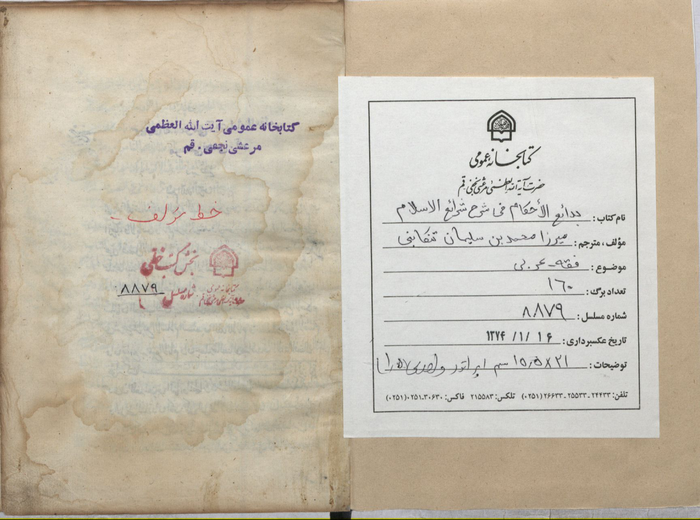 کتابخانه عمومی آیت الله العظمی
مرعشی نجفی - قم
خط مؤلف -
بخش کتب خطی
شماره مسلسل
۸۸۷۹
کتابخانه عمومی
حضرت آیة الله العظمی مرعشی نجفی قم
نام کتاب: بدائع الأحکام فی شرح شرائع الاسلام
مؤلف، مترجم: میرزا محمد بن سلیمان تنکابنی
موضوع: فقه - عربی
تعداد برگ: ۱۶۰
شماره مسلسل: ۸۸۷۹
تاریخ عکسبرداری: ۱۳۷۴/۱/۱۶
توضیحات: ۲۱×۱۵/۵ سم اپراتور
تلفن: ۲۴۴۳۳-۲۵۵۳۳-۲۶۶۳۳ (۰۲۵۱) تلکس: ۲۱۵۵۸۳ فاکس: ۳۰۶۳۰-۰۲۵۱ (۰۲۵۱)